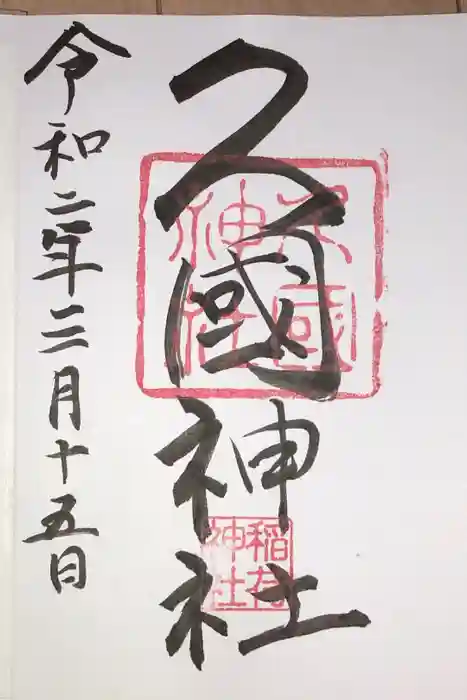 久國神社
久國神社
稲荷神社
令和二年三月十五日